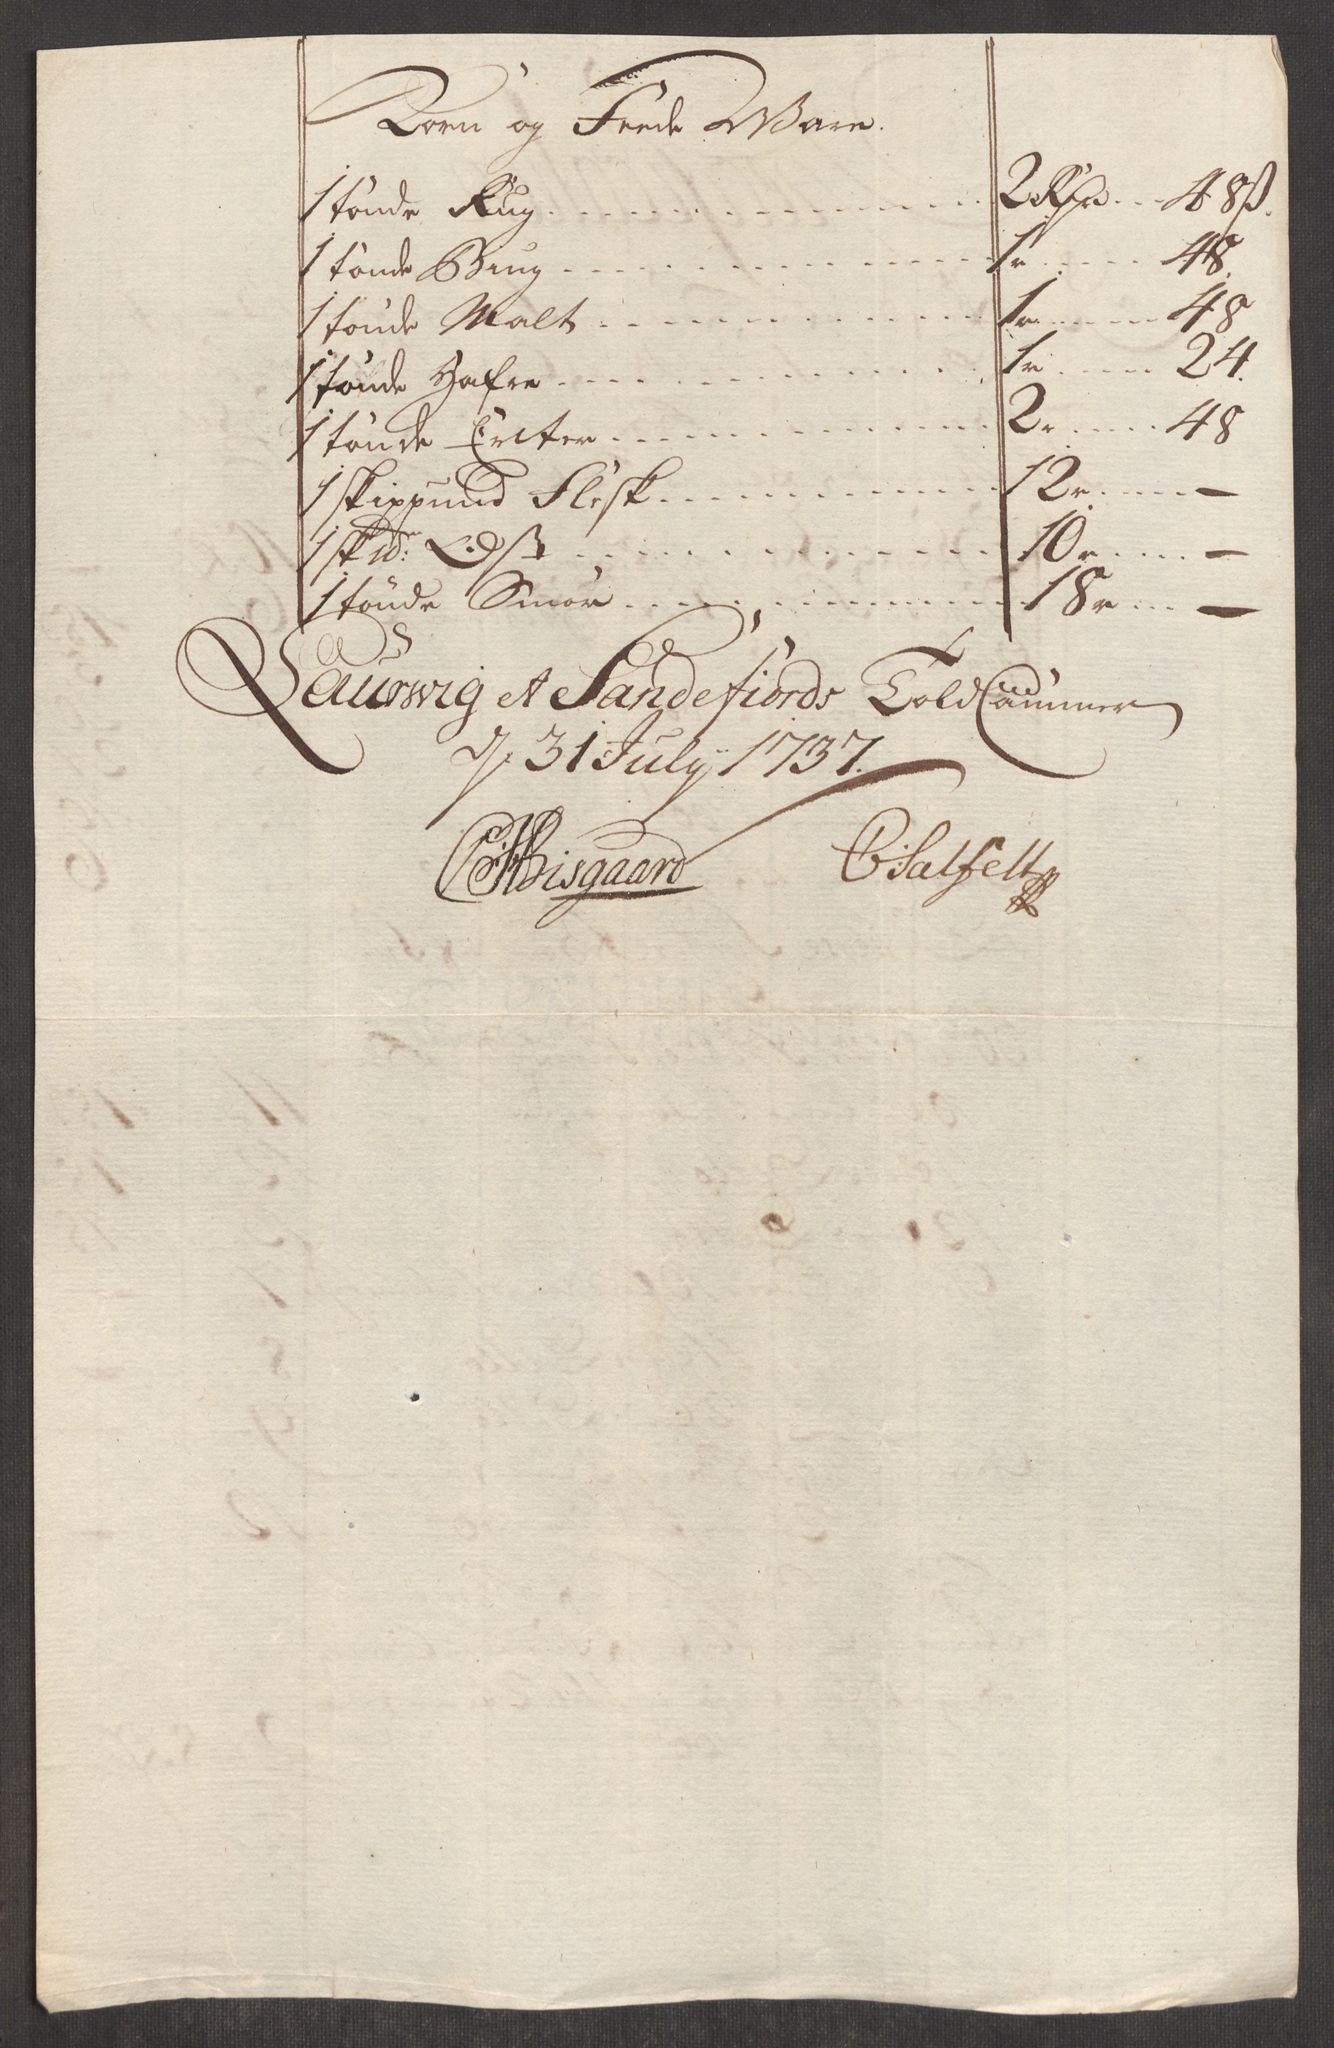 Korn og Feede Ware.
1 tönde Rug . . . . . 2 Rdr . . . 48 ß.
1 tönde Biug . . . . . 1 r . . . . 48.
1 tönde Malt . . . . . 1 r . . . . 48
1 tönde Hafre . . . . . 1 r . . . . 24.
1 tönde Erter . . . . . 2 r . . . . 48
1 skippund Flesk . . . . . 12 r . . . . —
1 sk℔: . . . . . 10 r . . . . —
1 tönde Smör . . . . . 18 r . . . —
Laurwig et Sandefiords Told Cammer
d. 31 July 1737.
Wisgaard C Salfelt